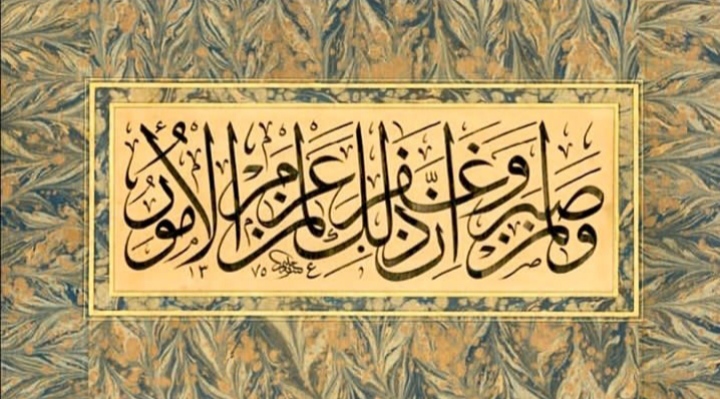 ولمن صبر وغفر إن ذلك لمن عزم الأمور
١٣٧٥